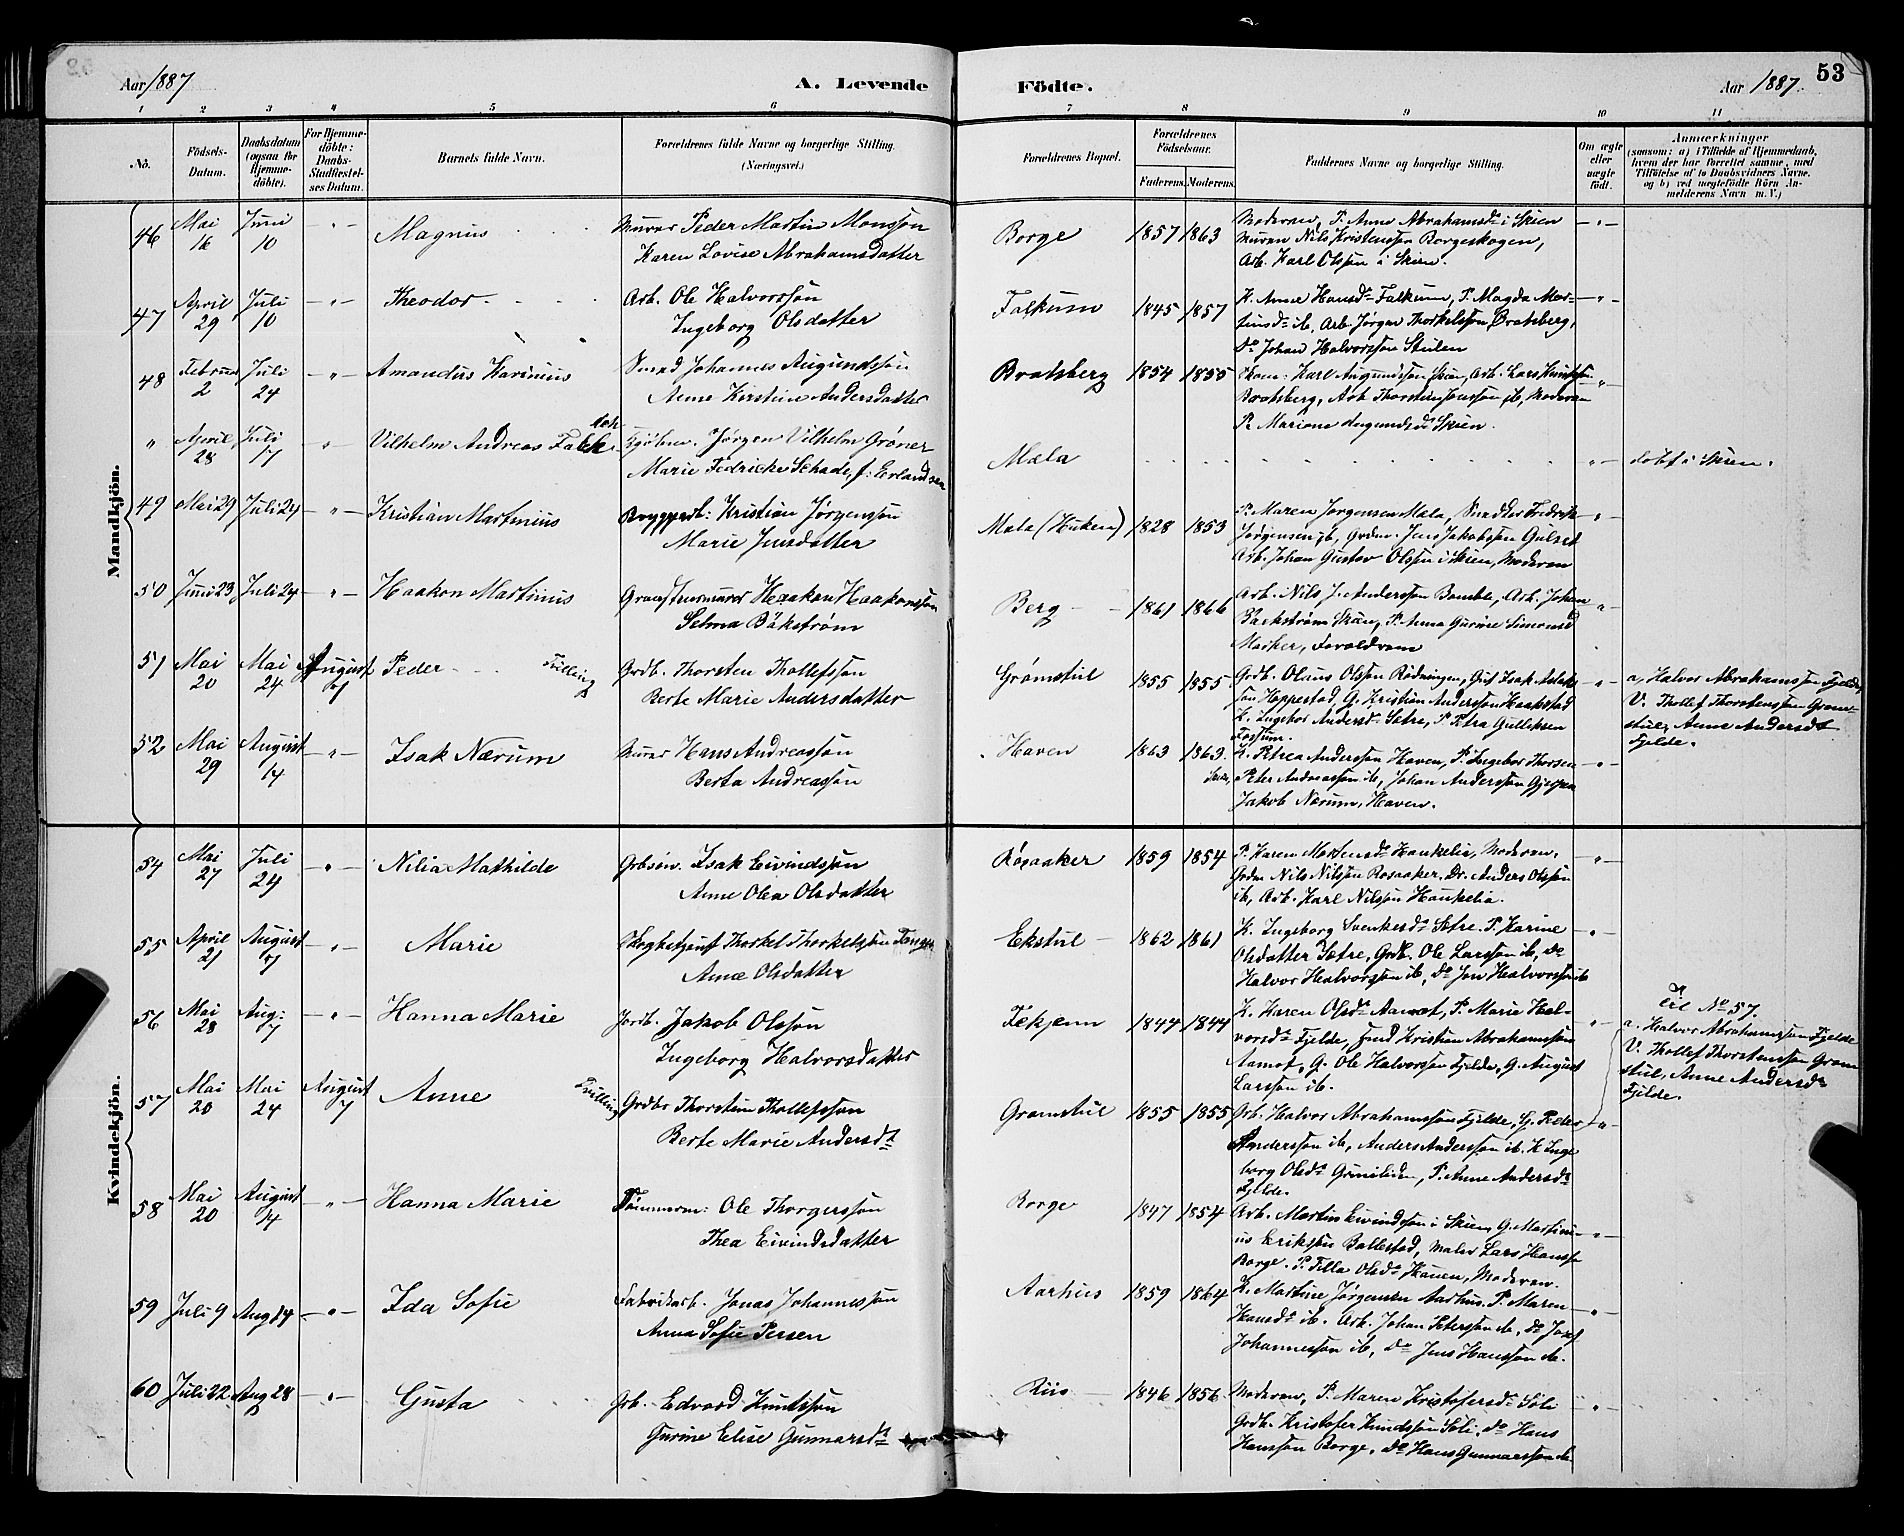 53
Aar 1887
A. Levende
Födte.
Aar 1887.
1 2 3 4 5 6 7 8 9 10 11
No.
Födsels-
Datum.
Daabsdatum
(ogsaa for
Hjemme-
döbte).
For Hjemme-
döbte:
Daabs-
Stadfæstel-
ses Datum.
Barnets fulde Navn.
Forældrenes fulde Navne og borgerlige Stilling.
(Næringsvei.)
Forældrenes Bopæl.
Forældrenes
Födselsaar.
Faderens. Moderens.
Faddernes Navne og borgerlige Stilling.
Om ægte
eller
uægte
födt.
Anmærkninger
(saasom: a) i Tilfælde af Hjemmedaab,
hvem der har forrettet samme, med
Tilföielse af to Daabsvidners Navne,
og b) ved uægtefödte Börn An-
melderens Navn m. V.)
Mandkjön.
46 Mai 16 Juni 10 - " - Magnus
Murer Peder Martin Monsson
Karen Lovise Abrahamsdatter
Borge 1857 1863
Moderen, P. Anne Abrahamsd. i Skien
Murer Nils Kristensson Borgeskogen,
Arb. Karl Olsson i Skien.
47 April 29 Juli 10 - " - Theodor
Arb. Ole Halvorsson
Ingeborg Olsdatter
Falkum 1845 1857
K. Anne Hansd. Falkum, P. Magda Mar-
tinsd. ib, Arb. Jørgen Thorkelsson Bratsberg,
Do Johan Halvorsson Stulen
48 Februar 2 Juli 24 - " - Amandus Karinius
Smed Johannes Augundsson
Anne Kirstine Andersdatter
Bratsberg 1854 1855
Karl Augundsson Skien, Arb. Lars Knutsson
Bratsberg, Arb. Thorstein Jonsson ib, Moderen
P. Mariane Augundsd. Skien.
" April 28 Juli 17 " Vilhelm Andreas Falck
Kjøbm. Jørgen Vilhelm Grøner
Marie Fedricke Schade, f. Erlandsen
Mæla
" - døbt i Skien.
49 Mai 29 Juli 24 - " - Kristian Martinius
Bryggearb: Kristian Jørgensson
Marie Jensdatter
Mæla (Huken) 1828 1853
P. Maren Jørgensen Mæla, Fredrik
Jørgensen ib, Grdm. Jens Jakobsson Gulset
Arb. Johan Gustav Olsson i Skien, Moderen
50 Juni 23 Juli 24 - " - Haakon Martinius
Graastensmurer Haakon Haakonsson
Selma Bäkström
Berg 1861 1866
Arb. Nils J. Andersson Bamble, Arb. Johan
Backstrøm Skien, P. Anna Gurine Simonsd
Mæther, Forældrene
51 Mai 20 Mai 24 August 7 Peder Tvilling
Grdb. Thorsten Thollefsson
Berte Marie Andersdatter
Grømstul 1855 1855
Grdb. Olaus Olsson Rødningen, Gut Isak Aslak-
son Hoppestad, G. Kristian Andersson Haakstad
K. Ingebor Andersd. Sætre, P. Petra Gulliksen
Fossum.
a, Halvor Abrahamsson Fjelde
V. Thollef Thorstensson Grøm-
stul, Anne Andersdt
Fjelde.
52 Mai 29 August 14 - " - Isak Nærum
Murer Hans Andreasson
Berta Andreasson
Haven 1863 1863.
K. Petrea Andersson Haven, P. Ingebor Thorsen
Peter Andreasson ib, Johan Andersson Gjerpen
Jakob Nærum, Haven.
Kvindekjön.
54 Mai 27 Juli 24 - " - Nilia Mathilde
Grbsøn. Isak Eivindsson
Anne Olea Olsdatter
Røsaaker 1859 1854
P. Karen Mortensd. Haukelia, Moderen.
Grdm Nils Nilsson Rosaaker, Dr. Anders Olsson
ib, Arb. Karl Nilsson Haukelia.
55 April 21 August 7 - " - Marie
Thorkel Thorkelsson
Anne Olsdatter
Ekstul 1862 1861
K. Ingeborg Svenkesd. Sætre. P. Karine
Olsdatter Sætre, Grdb. Ole Larsson ib, Do
Halvor Halvorsson ib, Do Jon Halvorsson ib
56 Mai 28 Aug: 7 - " - Hanna Marie
Jordb. Jakob Olsson
Ingeborg Halvorsdatter
Fekjenn 1844 1844
K. Karen Olsd. Aamot, P. Marie Hal-
vorsd. Fjelde, Kristian Abrahamsson
Aamot, G. Ole Halvorsson Fjelde, G. August
Larsson ib.
Til No 57.
a. Halvor Abrahamsson Fjelde
V. Thollef Thorstensson Grøm
stul, Anne Andersdt
Fjelde.
57 Mai 20 Mai 24 August 7 Anne Tvilling
Grdbr Thorsten Thollefsson
Berte Marie Andersdt
Grømstul 1855 1855
Grb. Halvor Abrahamsson Fjelde, G. Peder
Andersson ib, Anders Andersson ib. K Inge
borg Olsdt Grinilien, P. Anne Andersdt
Fjelde.
58 Mai 20 August 14 - " - Hanna Marie
Tømmerm: Ole Thorgersson
Thea Eivindsdatter
Borge 1847 1854
Arb. Martin Eivindsson i Skien, G. Martini-
us Eriksson Ballestad, Maler Lars Hansson
Borge. P. Tilla Olsdt Skauen, Moderen.
59 Juli 9 Aug 14 - " - Ida Sofie
Fabrikarb. Jonas Johannesson
Anna Sofie Persen
Aarhus 1859 1864
K. Martine Jørgensen Aarhus. P. Maren
Hansdt ib. Arb. Johan Petersson ib, Do Josef
Johannesson ib, Do Jens Hansson ib.
60 Juli 22. Aug 28 - " - Gusta
Grb. Edvard Knutsson
Gurine Elise Gunnarsdt
Riis 1846 1856.
Moderen, P. Maren Kristofersdt Soli
Grdb. Kristofer Knudsson Soli, Do Hans
Hansson Borge, Do Hans Gunnarsson ib